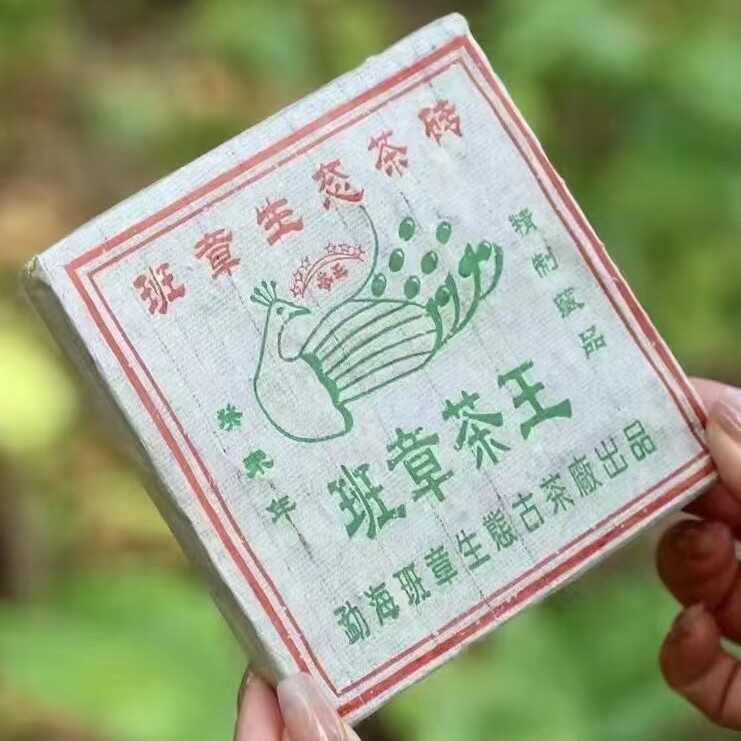 班章生态茶砖
茶王
精制
品
年
班章茶王
勐海班章生態古茶廠出品